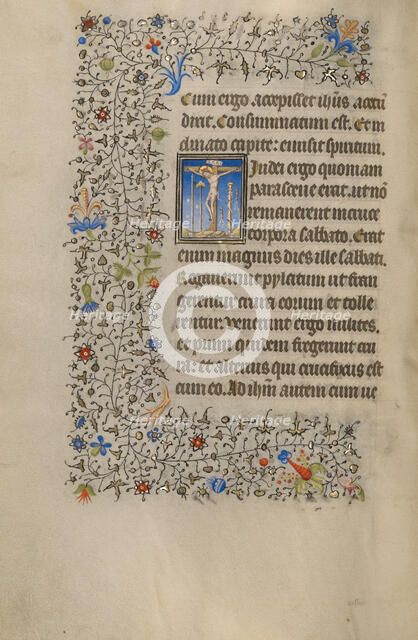 Cum ergo accepisset ihūs acetū
dixit. Consummatum est. Et in
clinato capite: emisit spiritum.
Iudei ergo quoniam
parasceue erat. ut nō
remanerent in cruce
corpora sabbato. Erat
enim magnus dies ille sabbati.
Rogauerunt pylatum ut fran
gerentur crura eorum et tolle
rentur. Venerunt ergo milites.
et primi quidem fregerunt cru
ra: et alterius qui crucifixus est
cum eo. Ad ihm̄ autem cum ue
Heritage Images
Heritage Images
Heritage Images
Heritage Images
Heritage Images
Heritage Images
©